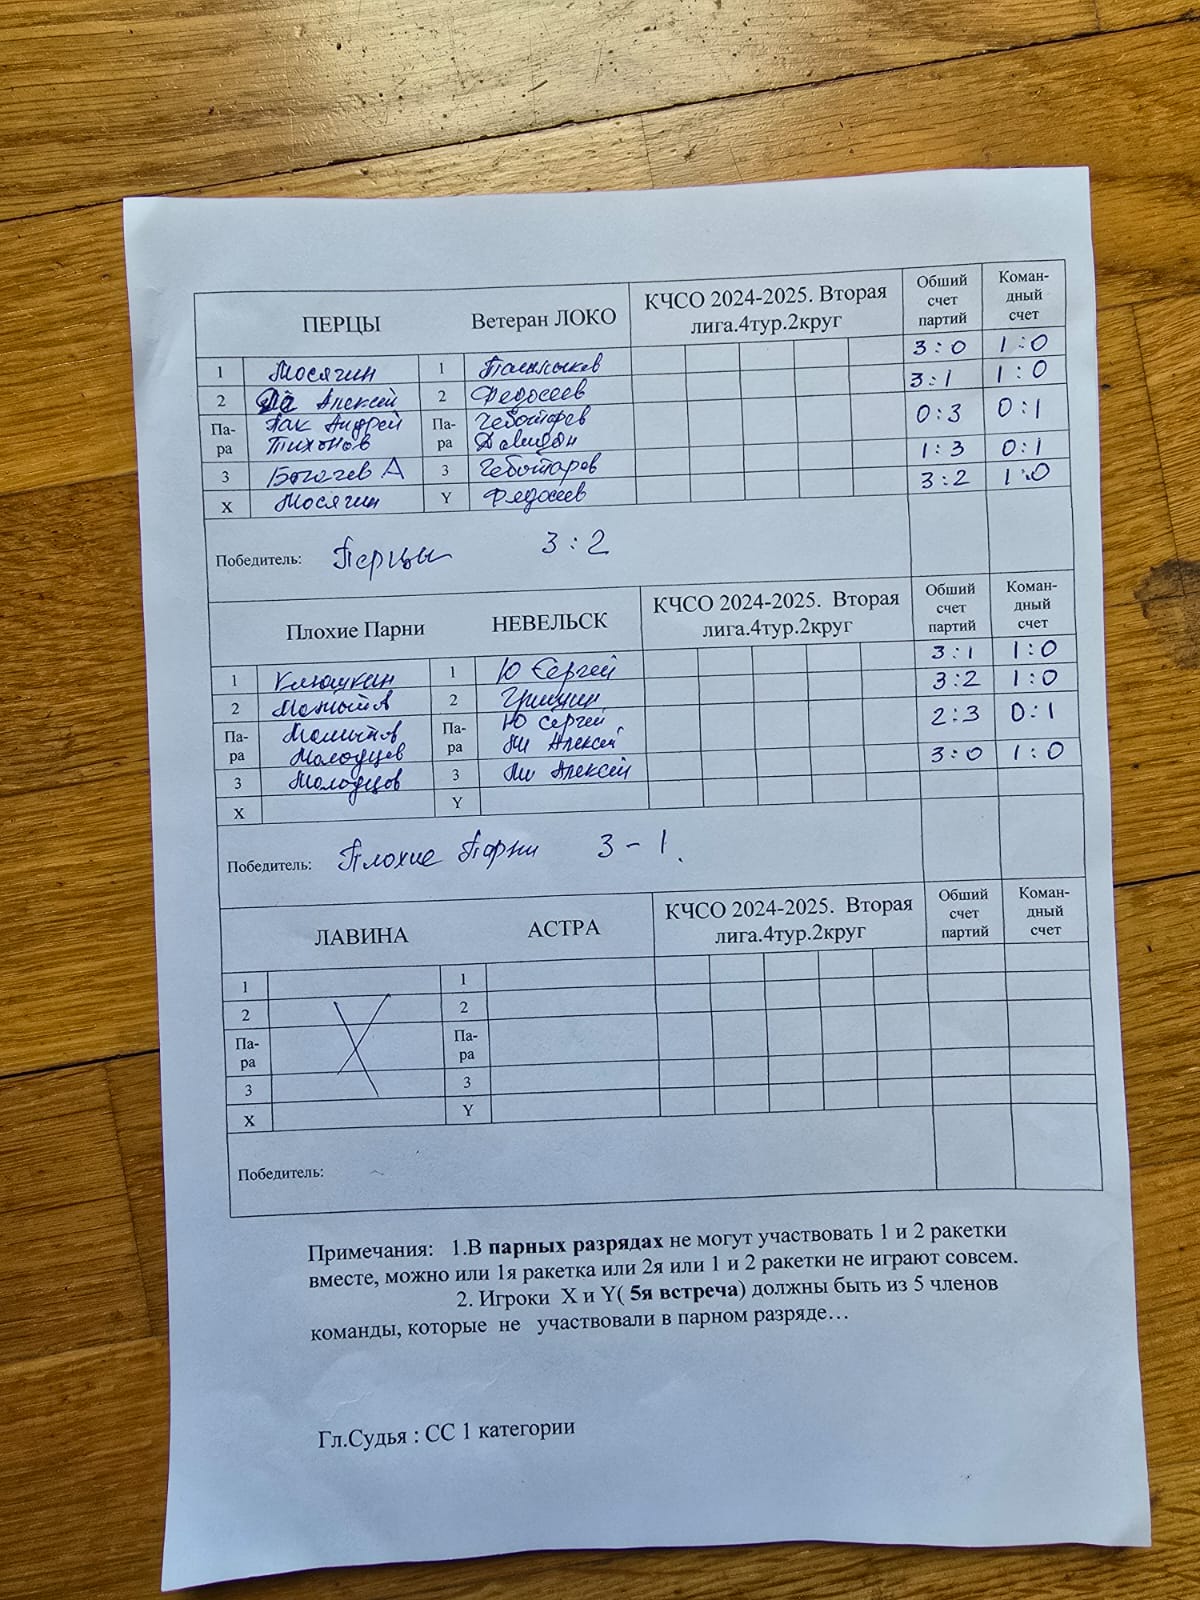 ПЕРЦЫ Ветеран ЛОКО КЧСО 2024-2025. Вторая лига.4тур.2круг Обший счет партий Коман-дный счет
1 Мосягин 1 3:0 1:0
2 Алексей 2 Федосеев 3:1 1:0
Па-ра Пак Андрей Тихонов Па-ра Чеботарев 0:3 0:1
3 Богачев А 3 Чеботарев 1:3 0:1
X Мосягин Y Федосеев 3:2 1:0
Победитель: Перцы 3:2
Плохие Парни НЕВЕЛЬСК КЧСО 2024-2025. Вторая лига.4тур.2круг Обший счет партий Коман-дный счет
1 Клюшкин 1 Ю Сергей 3:1 1:0
2 2 Гришин 3:2 1:0
Па-ра Молодцов Па-ра Ю Сергей Ли Алексей 2:3 0:1
3 Молодцов 3 Ли Алексей 3:0 1:0
X Y
Победитель: Плохие Парни 3-1.
ЛАВИНА АСТРА КЧСО 2024-2025. Вторая лига.4тур.2круг Обший счет партий Коман-дный счет
1 1
2 2
Па-ра Па-ра
3 3
X Y
Победитель:
Примечания: 1.В парных разрядах не могут участвовать 1 и 2 ракетки
вместе, можно или 1я ракетка или 2я или 1 и 2 ракетки не играют совсем.
2. Игроки X и Y( 5я встреча) должны быть из 5 членов
команды, которые не участвовали в парном разряде…
Гл.Судья : СС 1 категории